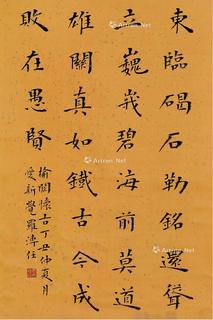 東臨碣石勒銘還聳
立巍峩碧海前莫道
雄關真如鐵古今成
敗在愚賢
榆關懷古丁丑仲夏月
愛新覺羅溥任
Artron.Net
Artron.Net